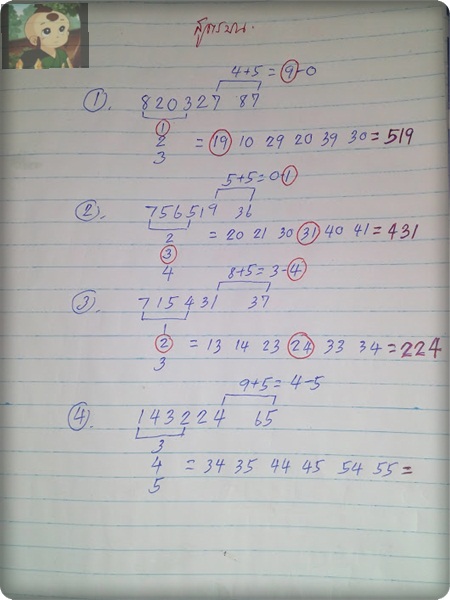 สูตรบน.
4+5 = 9-0
①. 820327 87
1
2 = 19 10 29 20 39 30 = 519
3
5+5=0-1
②. 756519 36
2 = 20 21 30 31 40 41 = 431
3
4
8+5=3-4
③. 715431 37
1
2 = 13 14 23 24 33 34 = 224
3
9+5= 4-5
④. 143224 65
3
4 = 34 35 44 45 54 55 =
5